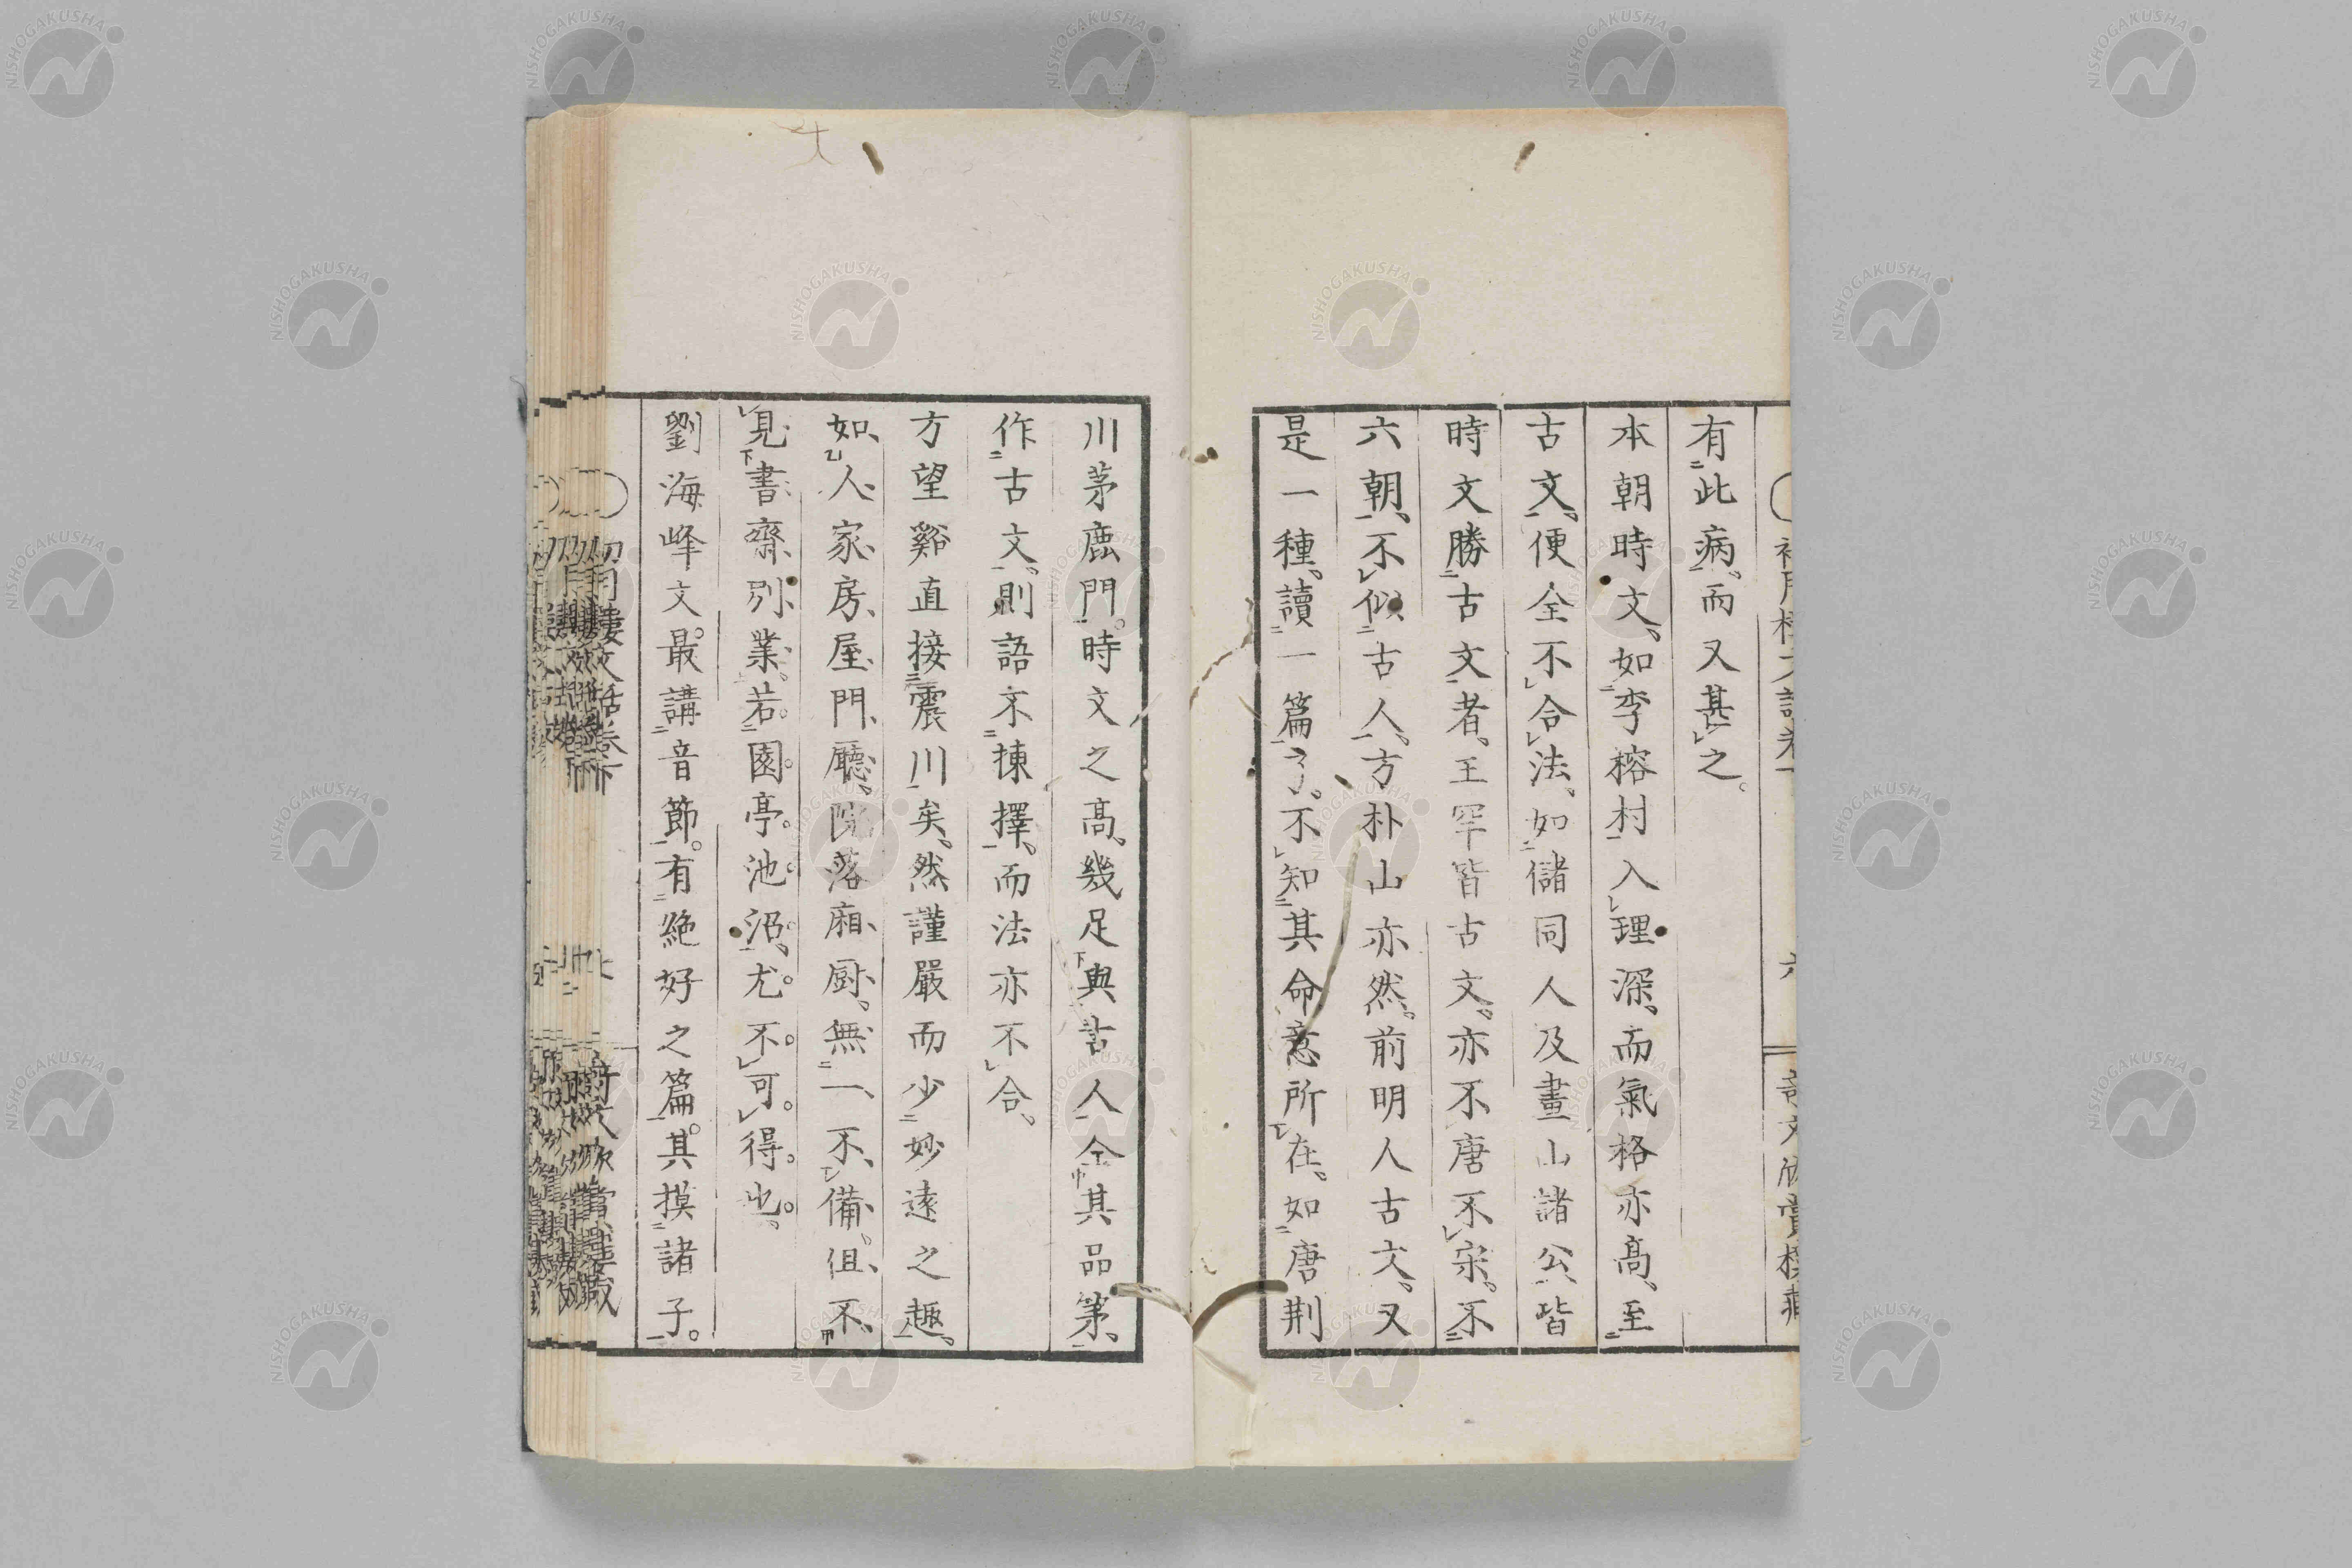 有此病、而又甚之。
本朝時文、如李榕村入理深、而氣格亦高、至
古文、便全不合法、如儲同人及畫山諸公、皆
時文勝古文者、王罕皆古文、亦不唐不宋。不
六朝、不似古人、方朴山亦然、前明人古文、又
是一種、讀一篇了、不知其命意所在、如唐荆
川茅鹿門。時文之高、幾足與古人全其品第、
作古文、則語不揀擇、而法亦不合、
方望谿直接震川矣、然謹嚴而少妙遠之趣、
如人家房屋門廳、院落廂廚、無一不備、但不
見書齋別業、若園亭池沼、尤不可得也、
劉海峰文。最講音節。有絶好之篇。其摸諸子。
NISHOGAKUSHA